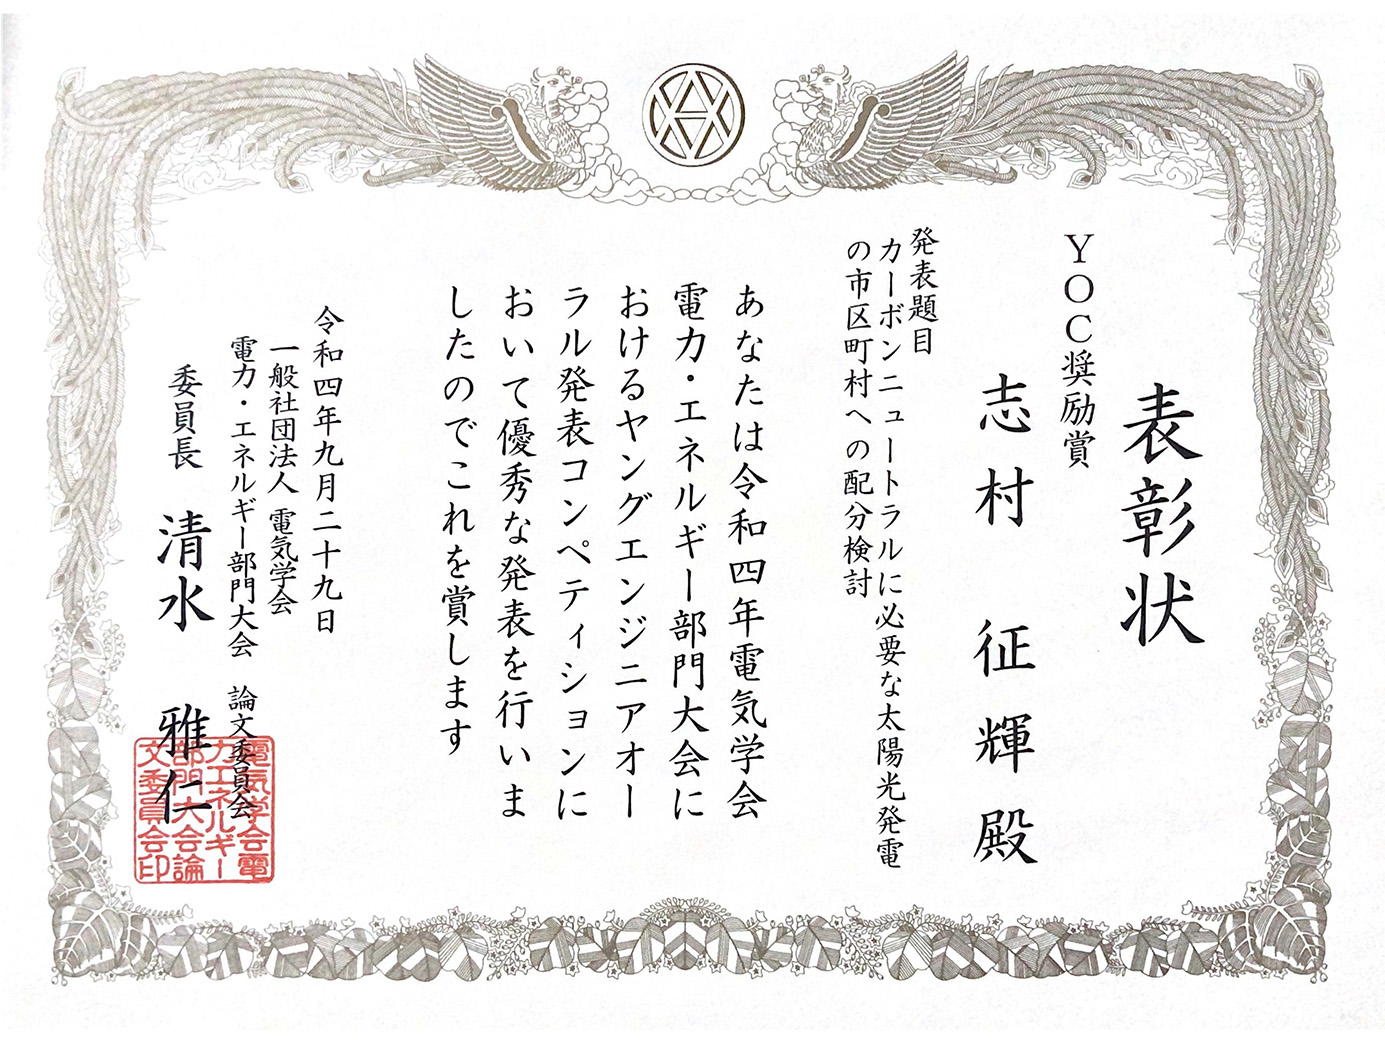 表彰状
YOC奨励賞
志村 征輝 殿
発表題目
カーボンニュートラルに必要な太陽光発電
の市区町村への配分検討
あなたは令和四年電気学会
電力・エネルギー部門大会に
おけるヤングエンジニアオー
ラル発表コンペティションに
おいて優秀な発表を行いま
したのでこれを賞します
令和四年九月二十九日
一般社団法人 電気学会
電力・エネルギー部門大会 論文委員会
委員長 清水 雅仁
電気学会電
力エネルギー
部門大会論
文委員会印